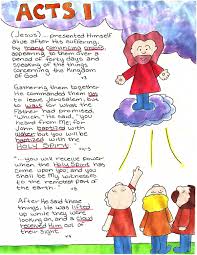 ACTS 1
(Jesus)... presented Himself
alive after His suffering,
by many convincing proofs,
appearing to them over a
period of forty days and
speaking of the things
concerning the Kingdom
of God
Gathering them together
He commanded them not
to leave Jerusalem, but
to wait for what the
Father had promised,
"Which," He said, "you
heard from Me; for
John baptized with
water but you will be
baptized with the
HOLY SPIRIT
"...you will receive power
when the Holy Spirit has
come upon you; and you
shall be My witnesses
to the remotest part of
the earth."
After He said these
things, He was lifted
up while they were
looking on, and a cloud
received Him out of
their sight.